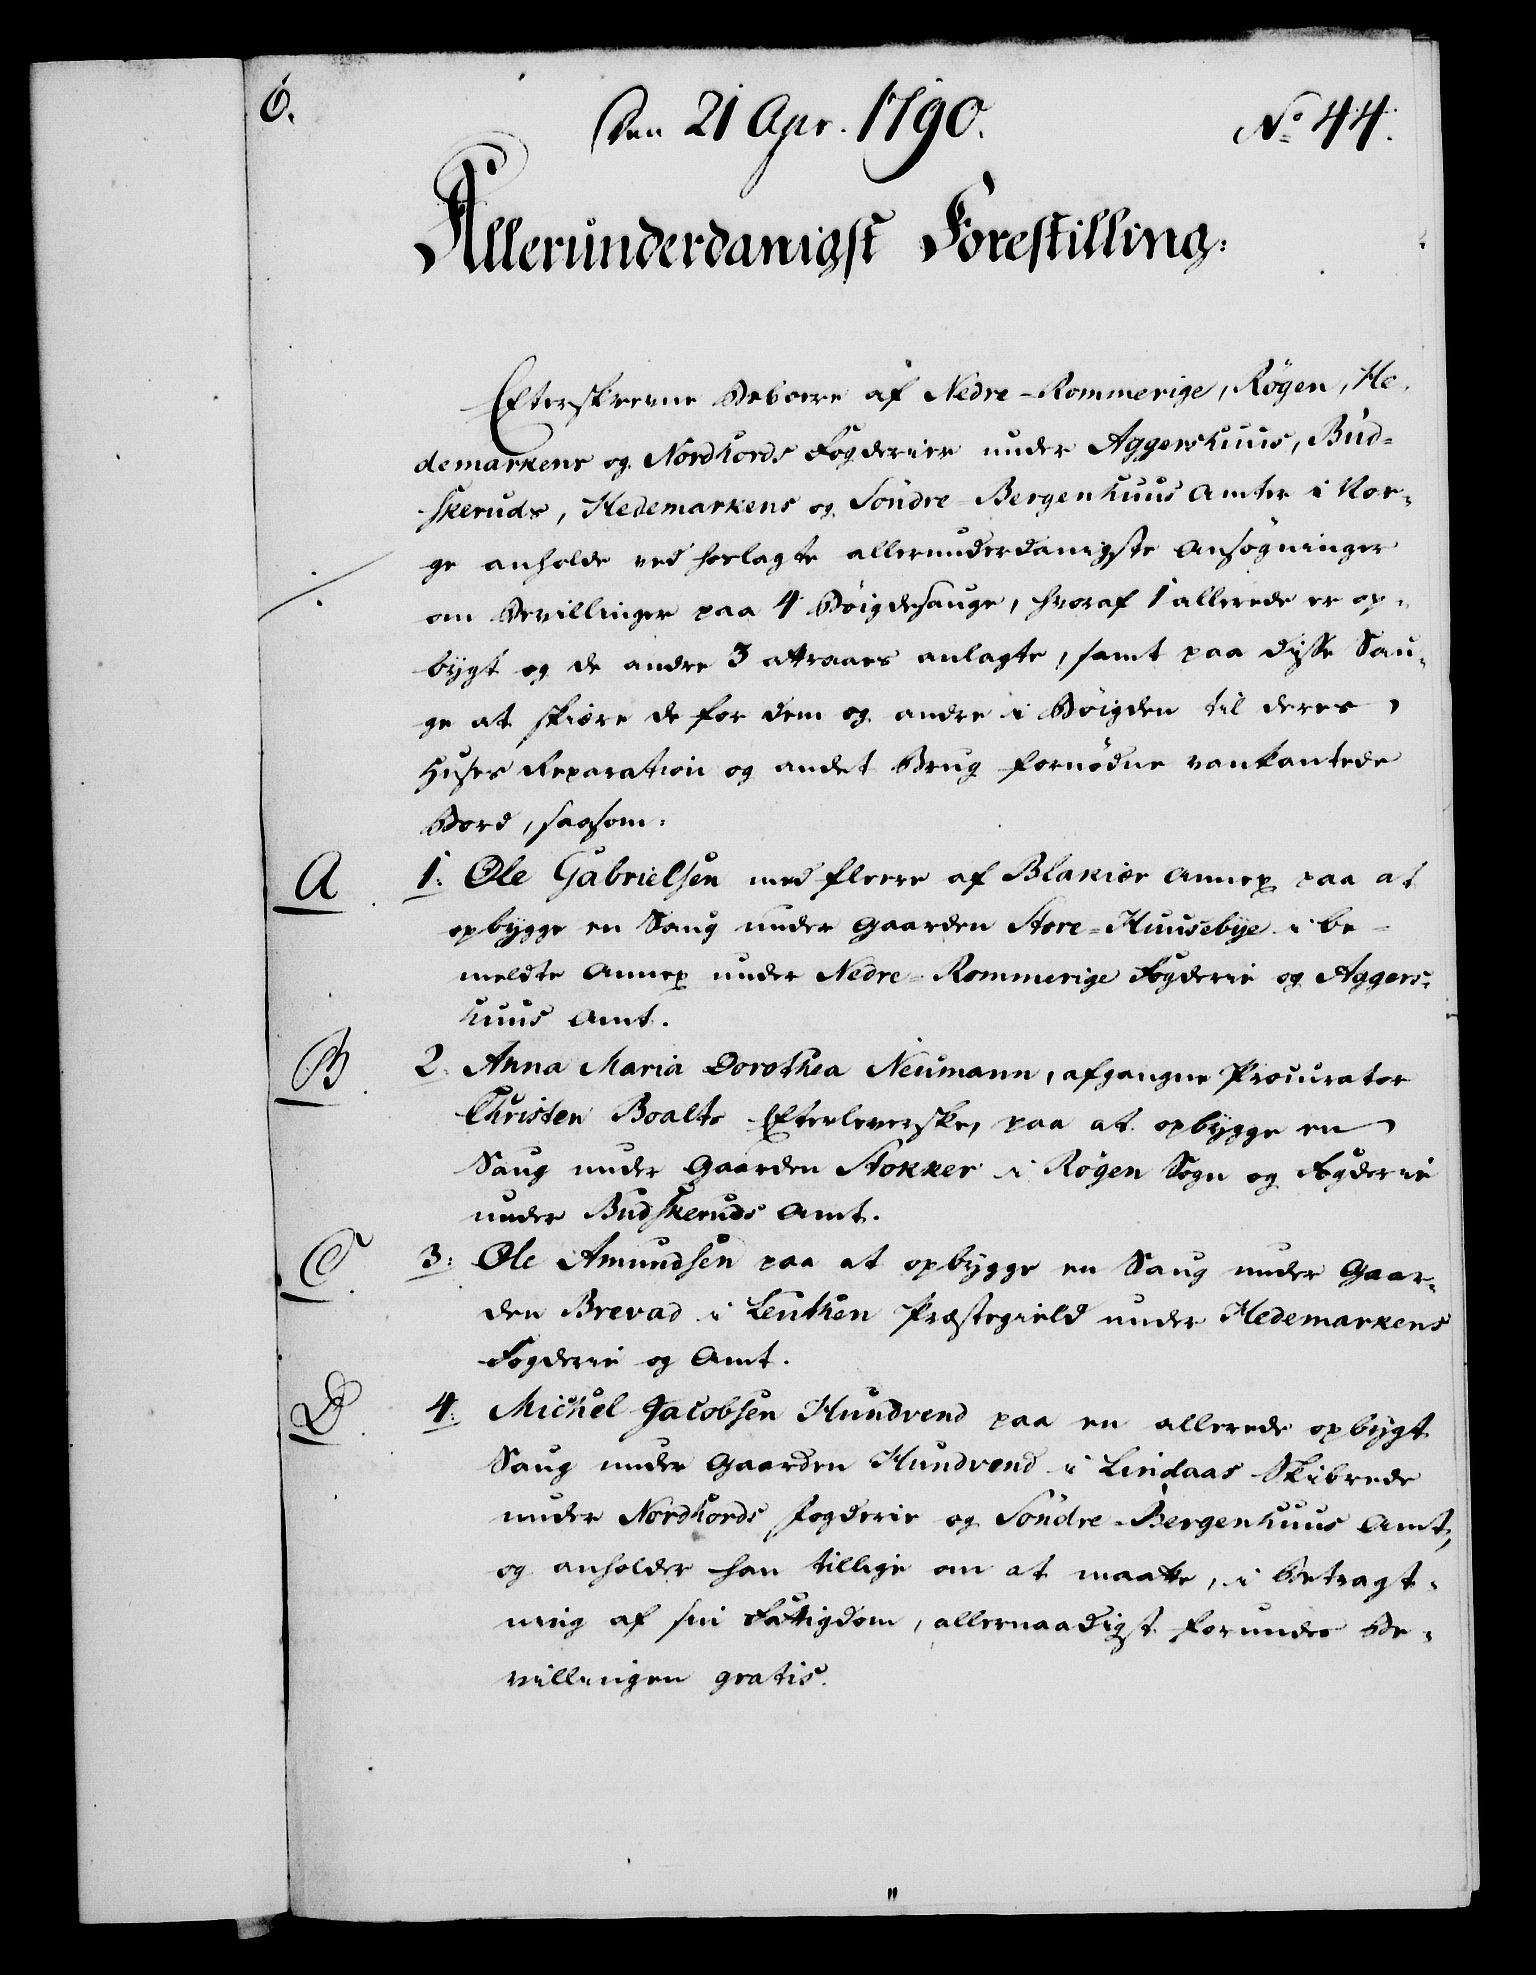 6.
Den 21 Apr. 1790.
No 44.
Allerunderdanigst Forestilling.
Efterskrevne Beboere af Nedre-Rommerige, Røgen, He-
demarkens og Nordhords Fogderier under Aggershuus, Bud-
skeruds, Hedemarkens og Søndre-Bergenhuus Amter i Nor-
ge anholde ved hoslagte allerunderdanigste Ansøgninger
om Bevillinger paa 4 Bøigdesauge, hvoraf 1 allerede er op-
bygt og de andre 3 attraaes anlagte, samt paa disse Sau-
ge at skiære de for dem og andre i Bøigden til deres
Huses Reparation og andet Brug fornødne vankantede
Bord, saasom:
A
1. Ole Gabrielsen med fleere af Blakiær Annex paa at
opbygge en Saug under Gaarden Store-Huusebye i be-
meldte Annex under Nedre-Rommerige Fogderie og Aggers-
huus Amt.
B
2. Anna Maria Dorothea Neumann, afgangne Procurator
Christen Boalts Efterleverske, paa at opbygge en
Saug under Gaarden Stokker i Røgen Sogn og Fogderie
under Budskeruds Amt.
C
3: Ole Amundsen paa at opbygge en Saug under Gaar-
den Brevad i Leuthen Præstegield under Hedemarkens
Fogderie og Amt.
D
4: Michel Jacobsen Hundvend paa en allerede opbygt
Saug under Gaarden Hundvend i Lindaas Skibrede
under Nordhords Fogderie og Søndre-Bergenhuus Amt,
og anholder han tillige om at maatte, i Betragt-
ning af sin Fattigdom, allernaadigst forundes Be-
villingen gratis.